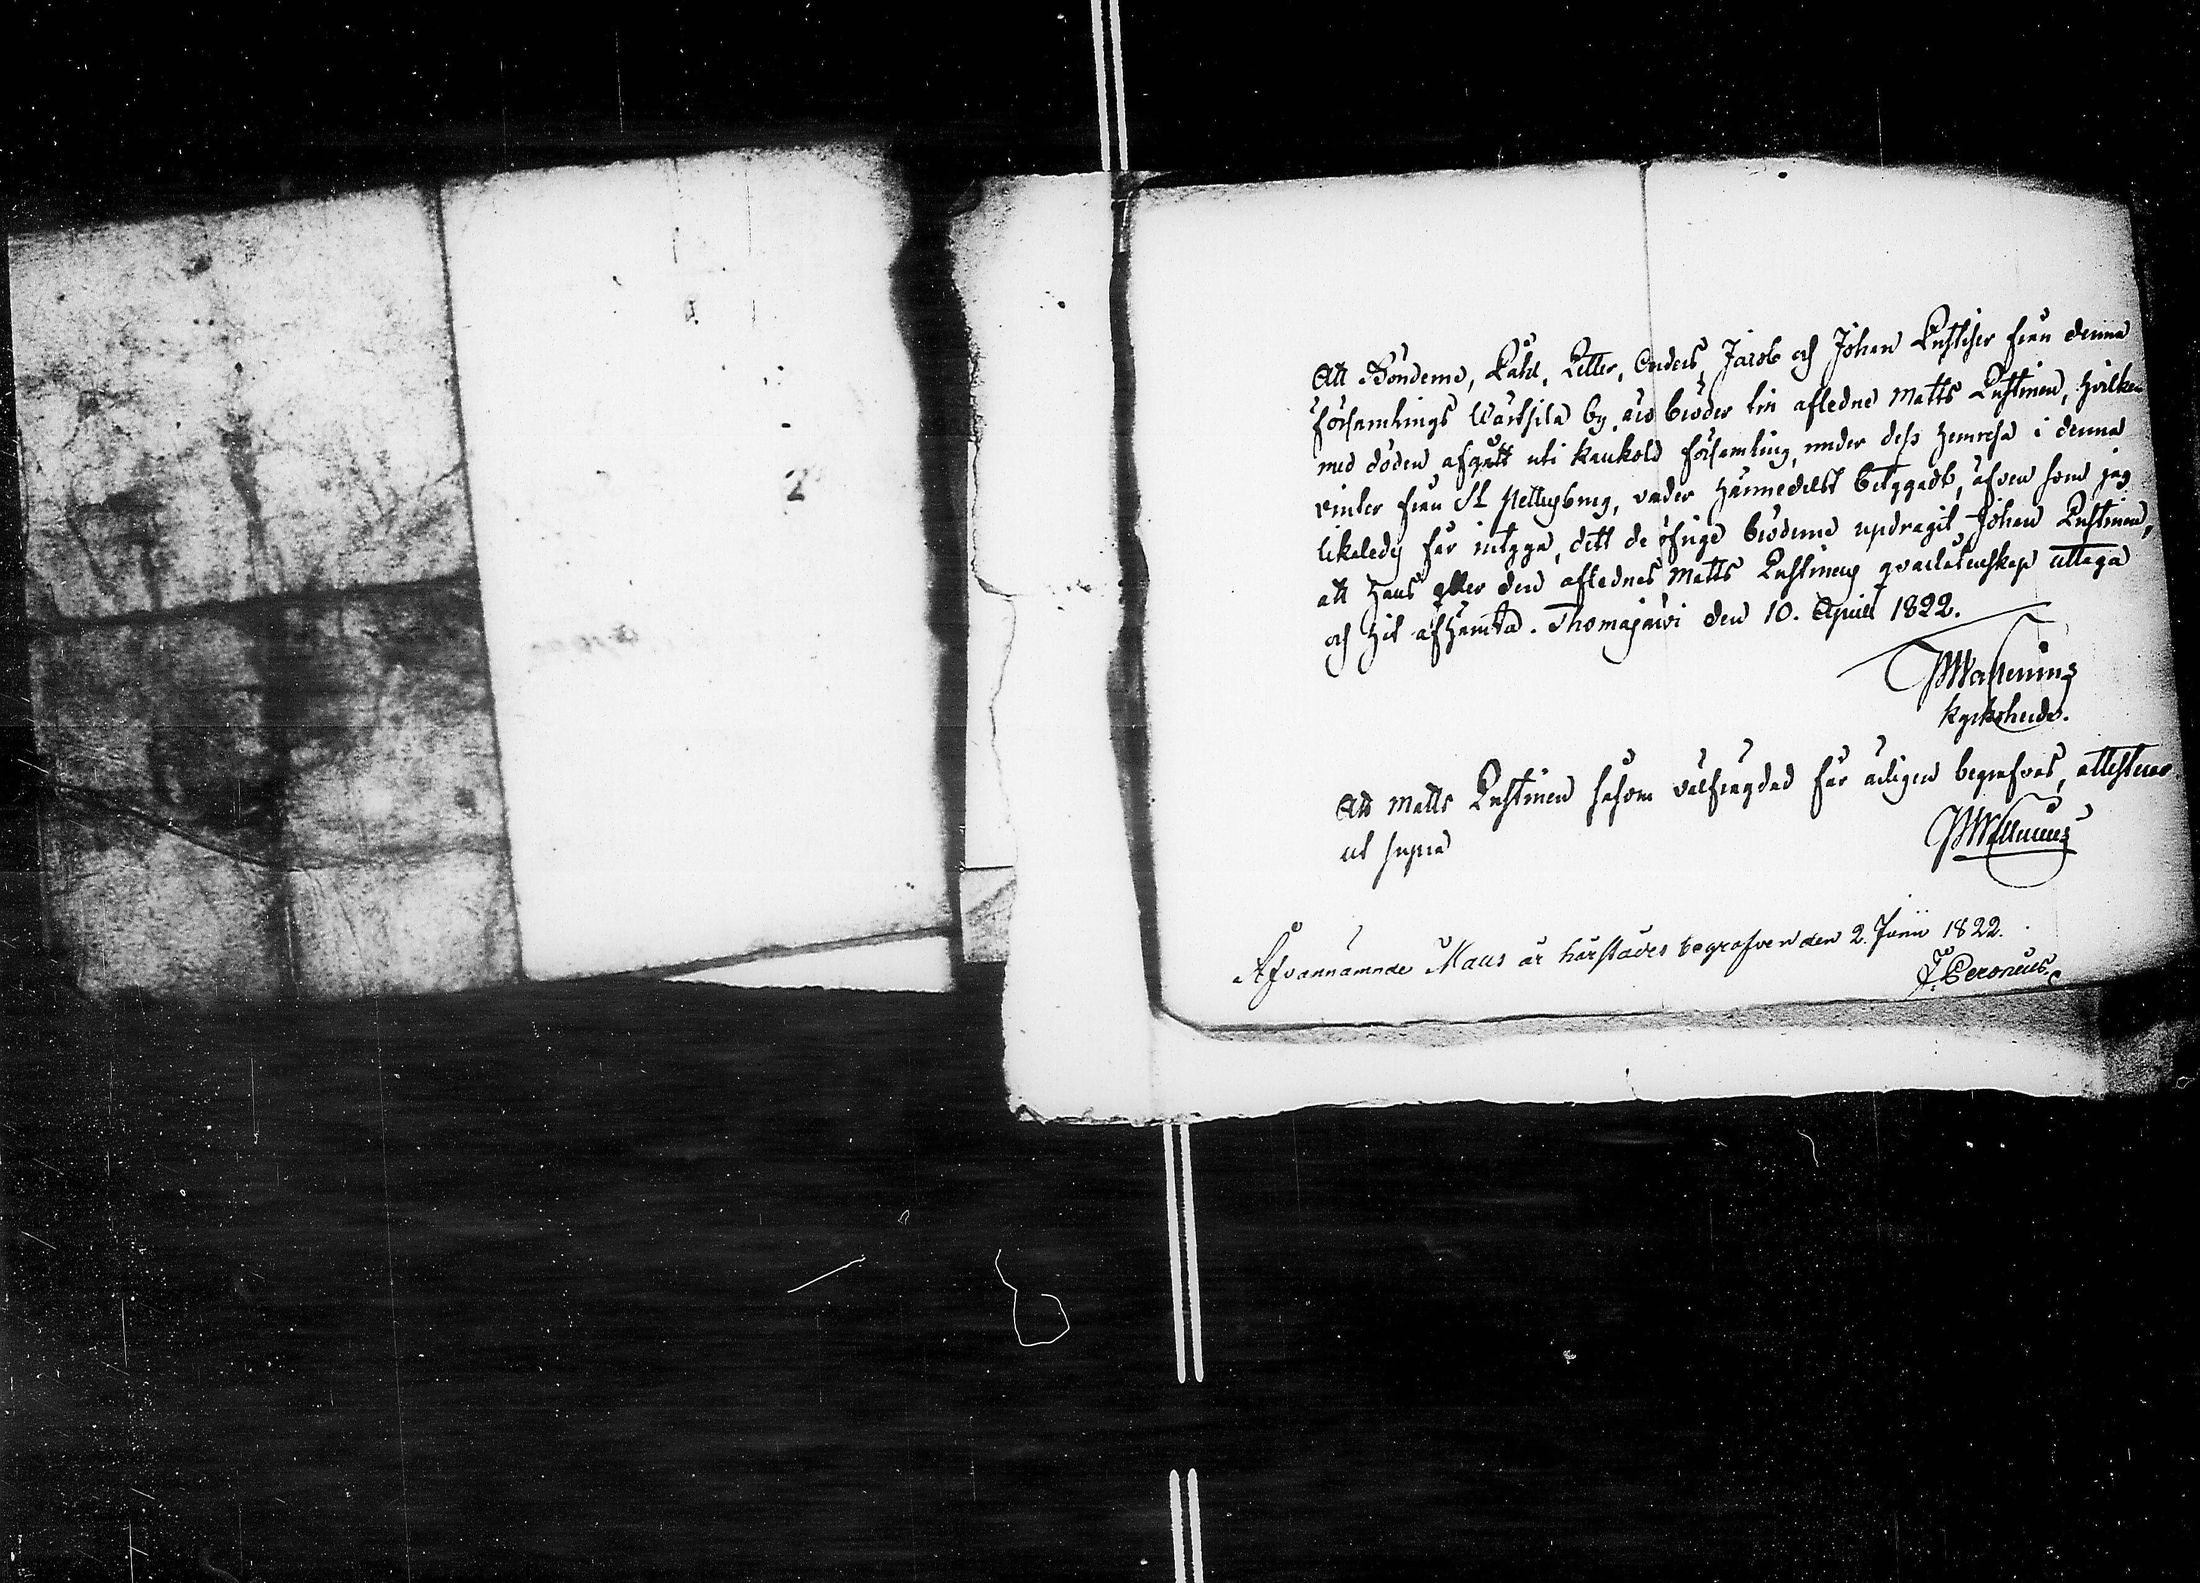 2
Att Bönderne, Påhl, Petter, Anders, Jacob och Johan Pustiser från denna
församlings Wärtsilä by, äro bröder till afledne Matts Pustinen, hvilken
med döden afgått uti Kaukola församling, under dess hemresa i denna
vinter från St Pettersburg, varder härmedelst betygadt, äfven som jag
likaledes får intyga, det de öfrige bröderne updragit Johan Pustinen,
att hans eller den aflednes Matts Pustinens qvarlåtenskap uttaga
och hit afhämta. Thomajärvi den 10. April 1822.
Kyrkoherde.
Att Matts Pustinen såsom välfrägdad får ärligen begrafvas, attesteras
ut supra
Afvannämnde Matts är härstädes begrafven den 2. Junii 1822.